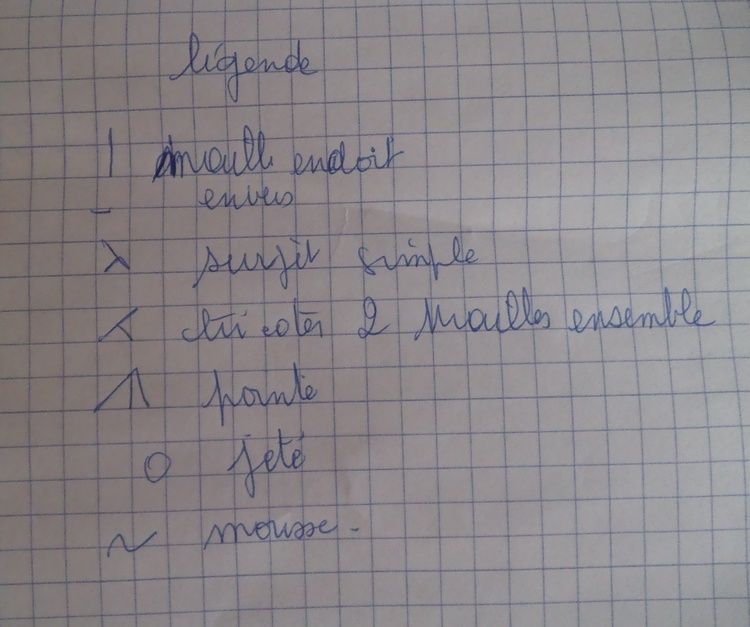 légende
| maille endoit
- envers
⋋ surjet simple
⋌ tricoter 2 mailles ensemble
pointe
O jeté
~ mousse -